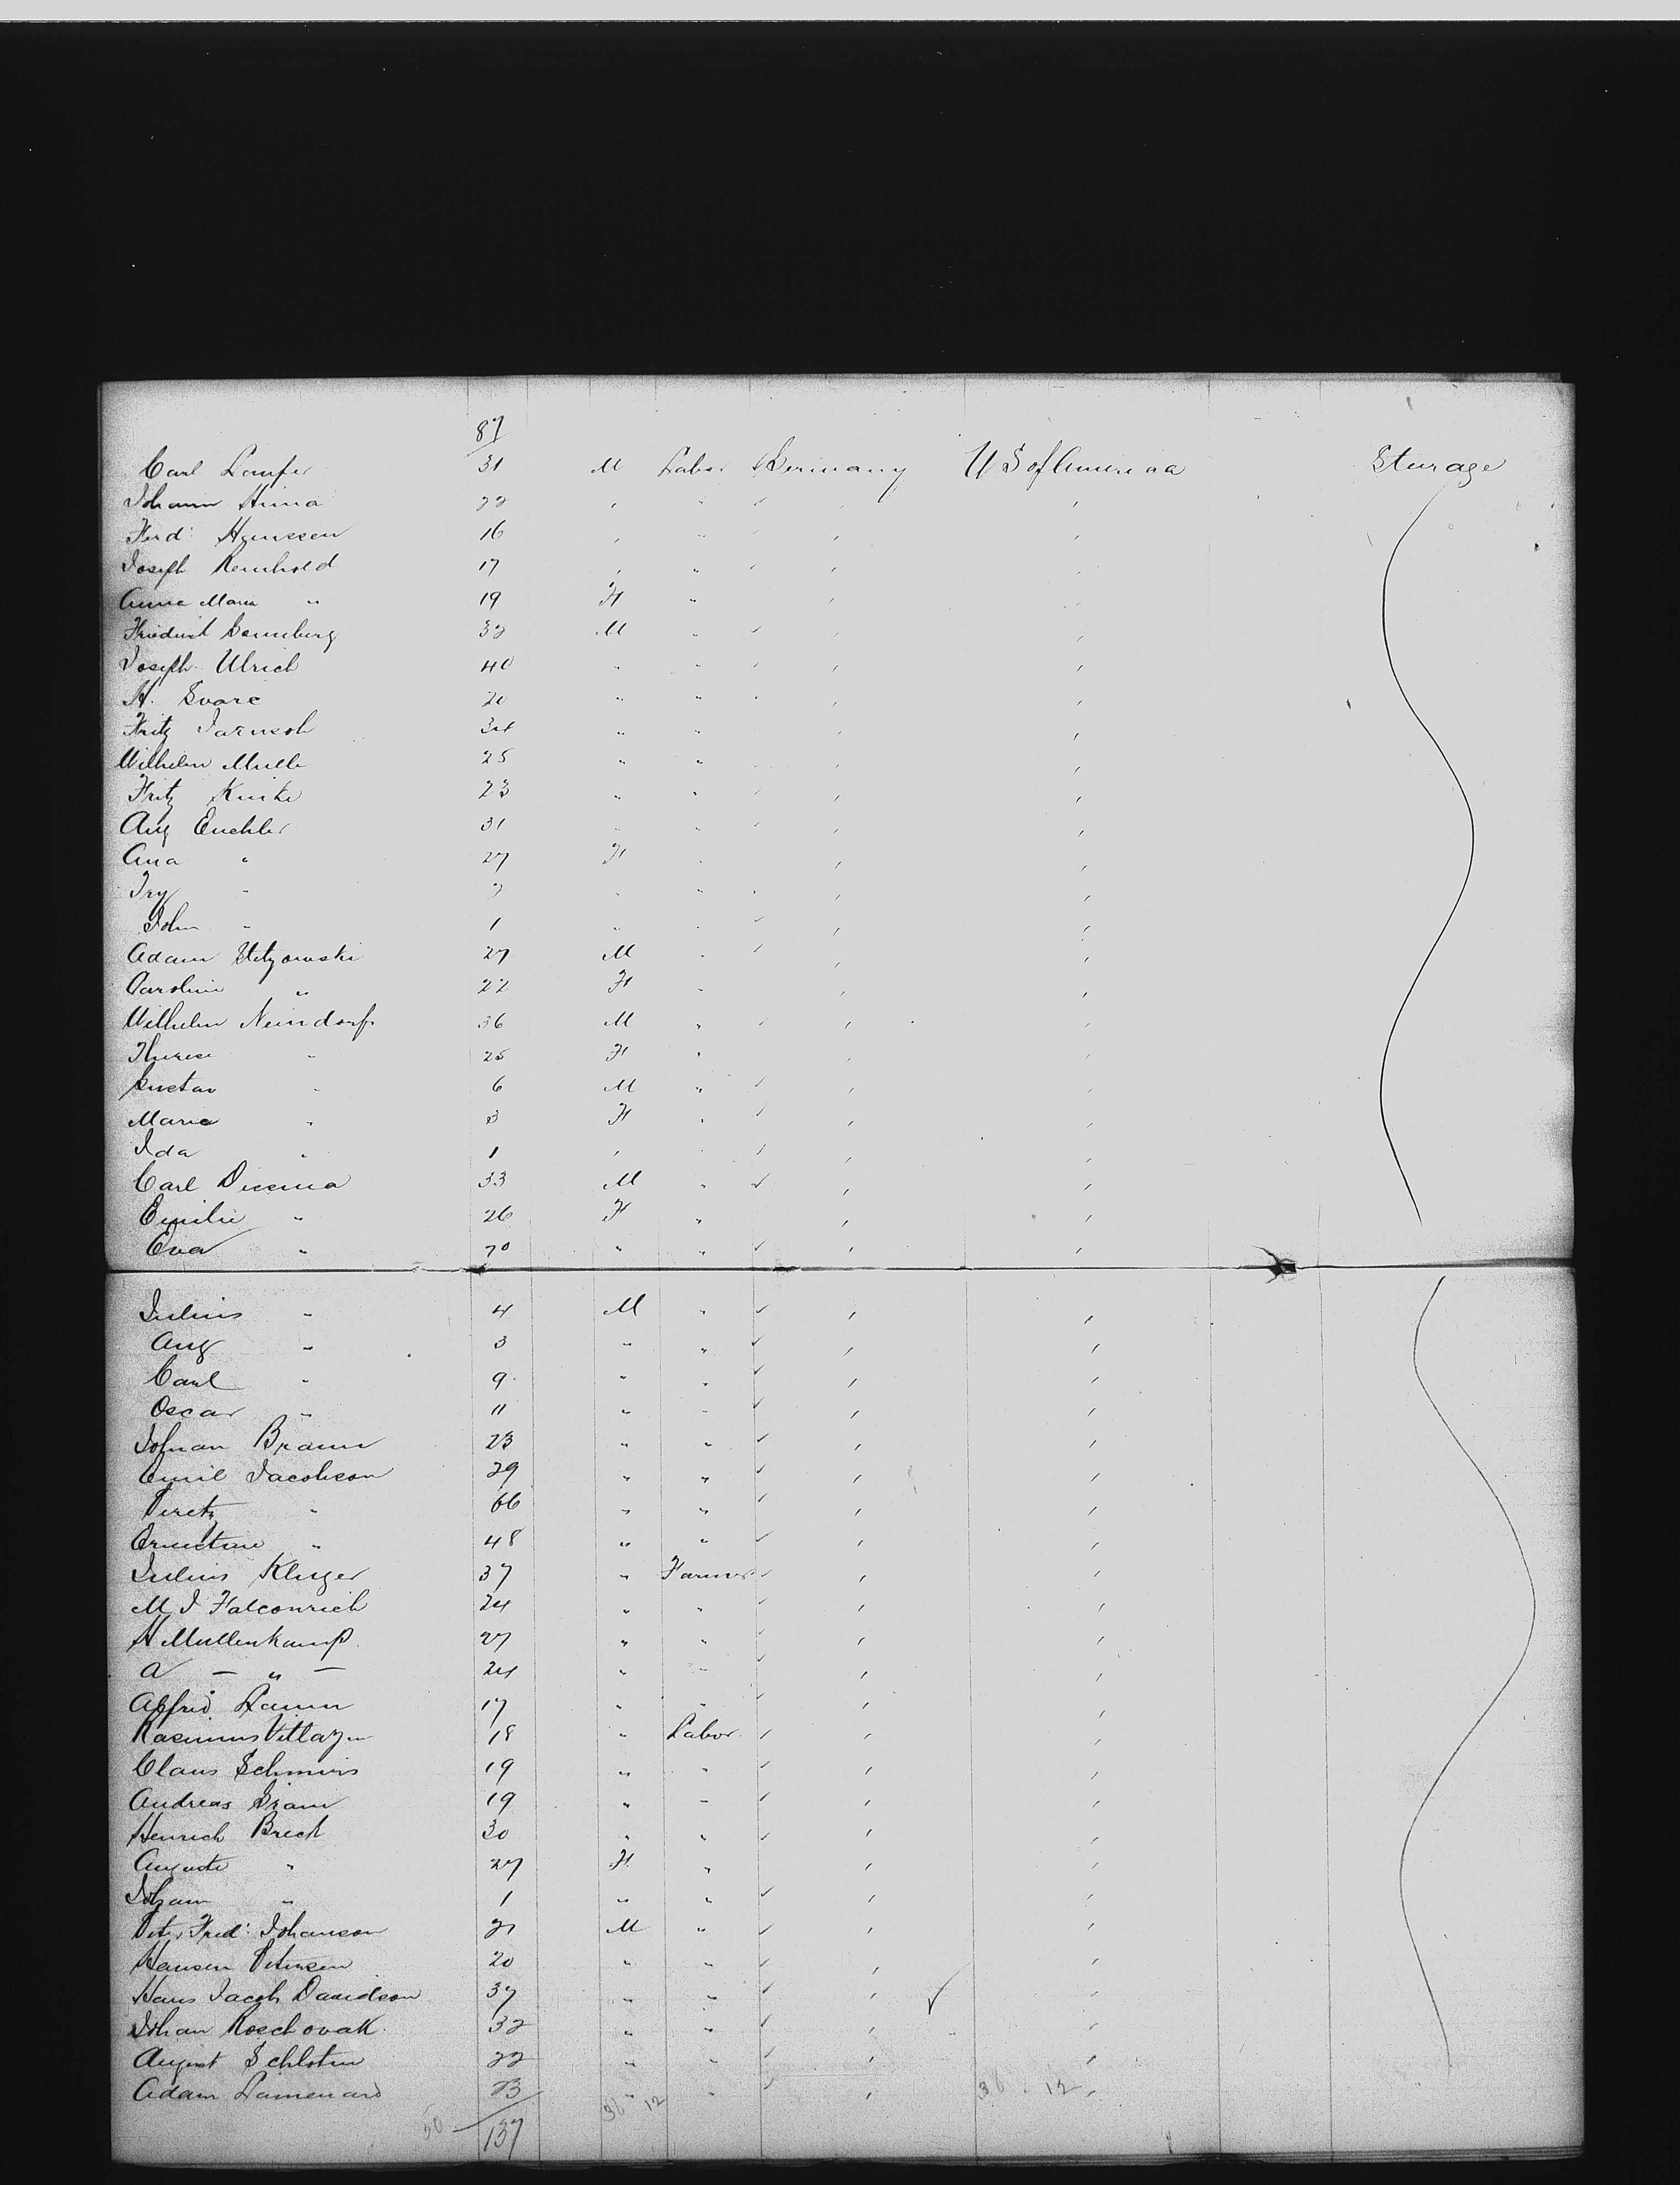 87
Carl Laufer 31 M Labor Germany U S of America Sturage
Johann Anna 22 " " " "
Ferd: Hanssen 16 " " " "
Joseph Reinhold 17 " " " "
Anna Maria " 19 F " " "
Friedrich 32 M " " "
Joseph Ulrich 40 " " " "
H. Svarc 20 " " " "
Fritz 34 " " " "
Wilhelm 25 " " " "
Fritz 23 " " " "
Aug 31 " " " "
Ana " 27 F " " "
" " " " "
John " 1 " " " "
Adam 27 M " " "
Caroline " 22 F " " "
Wilhelm Neindorf 36 M " " "
Therese " 25 F " " "
Gustav " 6 M " " "
Maria " 3 F " " "
Ida " 1 " " " "
Carl 33 M " " "
Emilie " 26 F " " "
Eva " 70 " " " "
Julius " 4 M " " "
Aug " 3 " " " "
Carl " 9 " " " "
Oscar " 11 " " " "
Johan Braun 23 " " " "
Emil Jacobson 29 " " " "
Peretz " 66 " " " "
Ernestine " 48 " " " "
Julius Kluger 37 " Farmer " "
M J Falconrich 24 " " " "
H Mullenkamp 27 " " " "
A — " — 24 " " " "
Alfred 17 " " " "
Rasmus 18 " Labor " "
Claus 19 " " " "
Andreas 19 " " " "
Henrich Brech 30 " " " "
Auguste " 27 F " " "
Johann " 1 " " " "
Peter Fred: Johanson 21 M " " "
Hansen Petersen 20 " " " "
Hans Jacob Davidson 37 " " " "
Johan Roschovak 32 " " " "
August 22 " " " "
Adam 23 " " " "
50 — 137 36 12 36 12